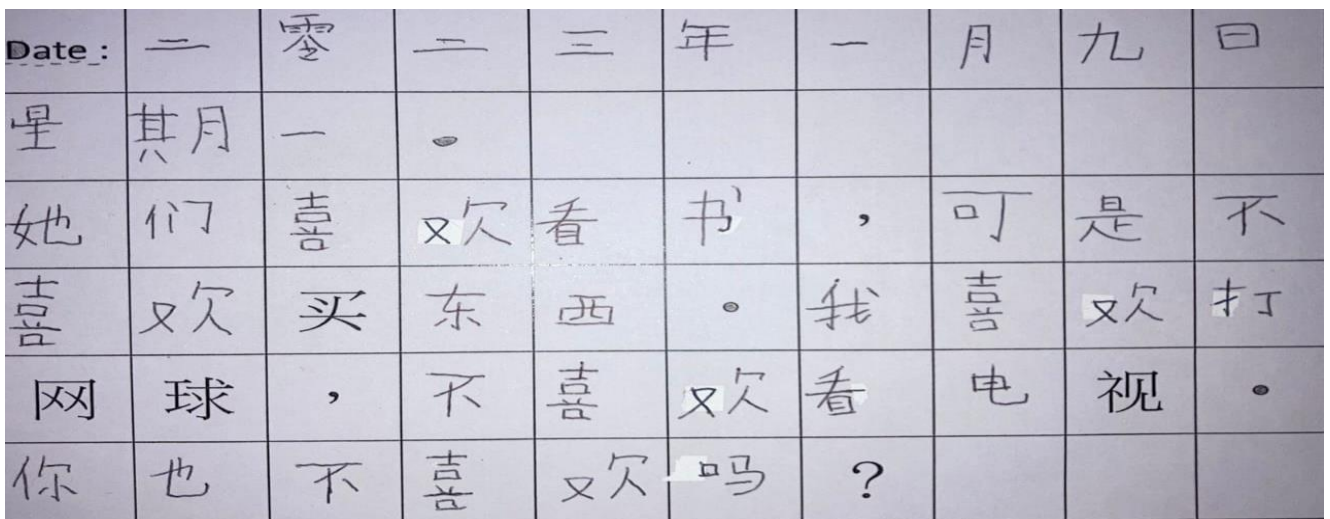 Date : 二零二三年一月九日
星期一。
她们喜欢看书，可是不
喜欢买东西。我喜欢打
网球，不喜欢看电视。
你也不喜欢吗？